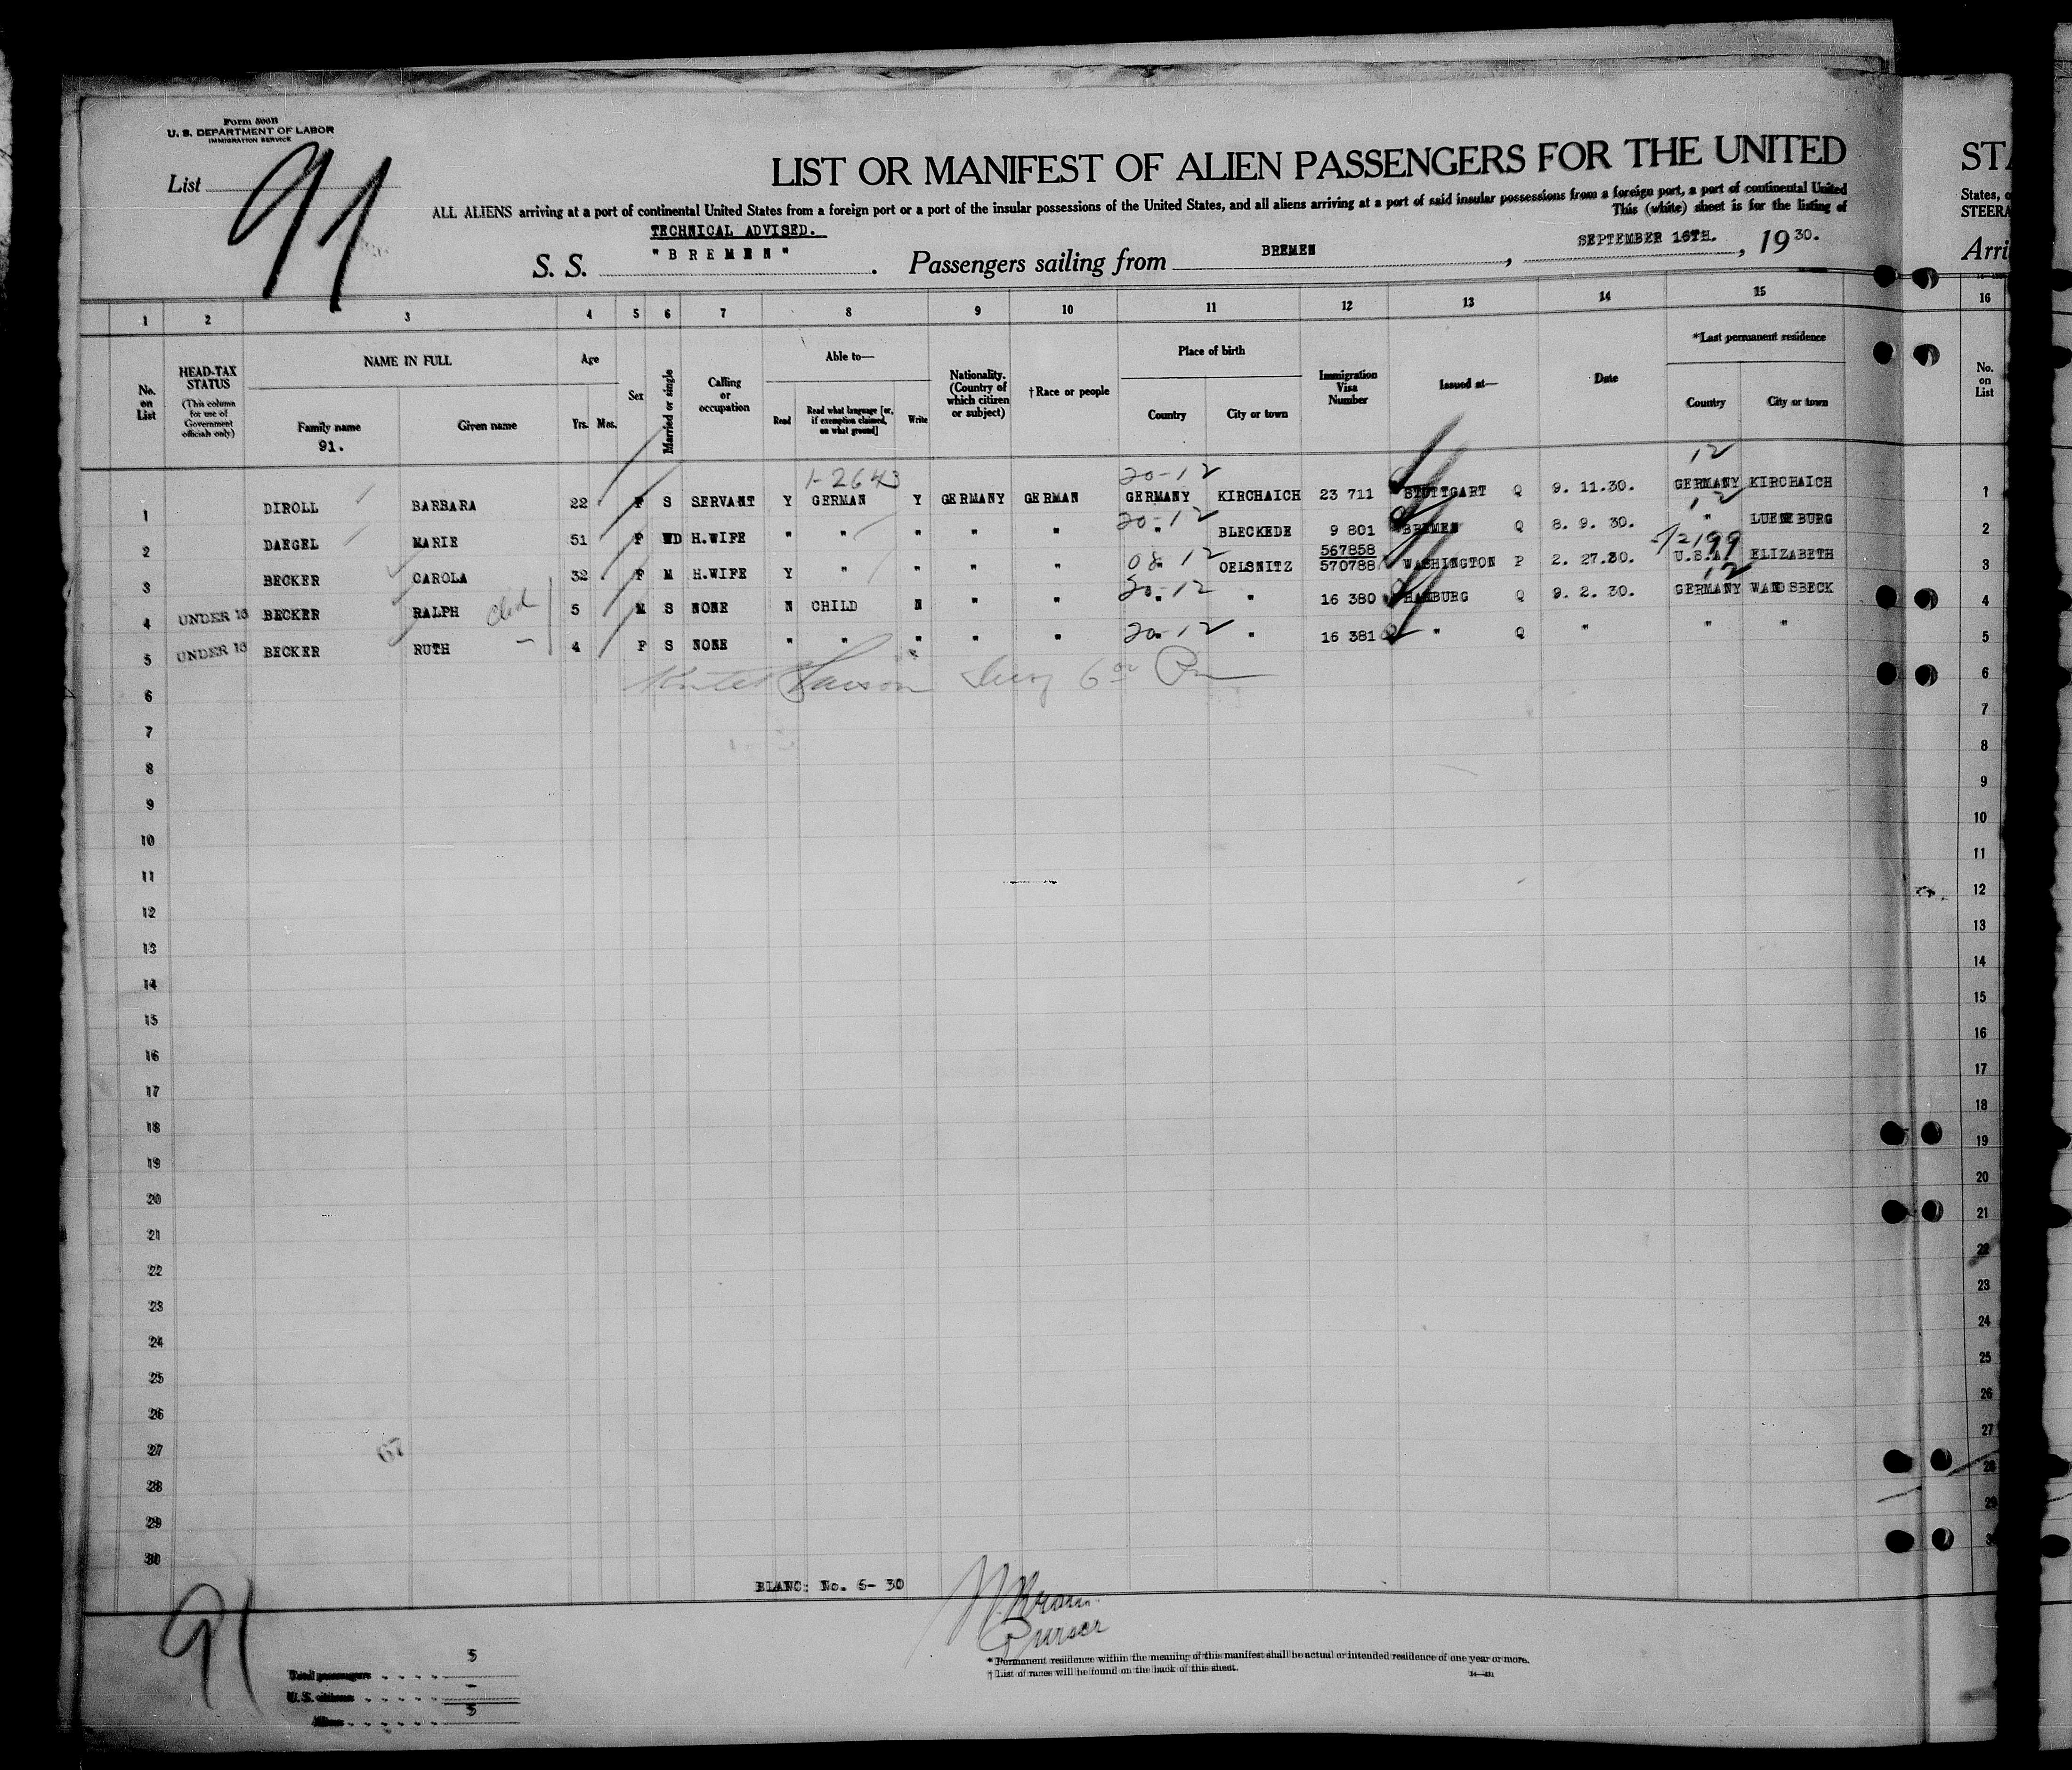 Form 500B
U. S. DEPARTMENT OF LABOR
IMMIGRATION SERVICE
List 91
LIST OR MANIFEST OF ALIEN PASSENGERS FOR THE UNITED
ALL ALIENS arriving at a port of continental United States from a foreign port or a port of the insular possessions of the United States, and all aliens arriving at a port of said insular possessions from a foreign port, a port of continental United
This (white) sheet is for the listing of
TECHNICAL ADVISED.
S. S. "BREMEN". Passengers sailing from BREMEN, SEPTEMBER 16TH., 1930.
STA
States, o
STEERA
Arri
1 2 3 4 5 6 7 8 9 10 11 12 13 14 15 16
No. on List
HEAD-TAX STATUS (This column for use of Government officials only)
NAME IN FULL Family name Given name
91.
Age Yrs. Mos.
Sex
Married or single
Calling or occupation
Able to— Read Read what language [or, if exemption claimed, on what ground] Write
Nationality. (Country of which citizen or subject)
†Race or people
Place of birth Country City or town
Immigration Visa Number
Issued at—
Date
*Last permanent residence Country City or town
No. on List
1-2643 20-12 12
1 DIROLL BARBARA 22 F S SERVANT Y GERMAN Y GERMANY GERMAN GERMANY KIRCHAICH 23 711 STUTTGART Q 9. 11.30. GERMANY KIRCHAICH 1
20-12 12
2 DAEGEL MARIE 51 F WD H.WIFE " " " " " " BLECKEDE 9 801 BREMEN Q 8. 9. 30. " LUENEBURG 2
567858
08 12 2199
3 BECKER CAROLA 32 F M H.WIFE Y " " " " " OELSNITZ 570788 WASHINGTON P 2. 27.30. U.S.A. ELIZABETH 3
20-12 12
4 UNDER 16 BECKER RALPH 5 M S NONE N CHILD N " " " " 16 380 HAMBURG Q 9. 2. 30. GERMANY WANDSBECK 4
20-12
5 UNDER 16 BECKER RUTH 4 F S NONE " " " " " " " 16 381 " Q " " " 5
6 6
7 7
8 8
9 9
10 10
11 11
12 12
13 13
14 14
15 15
16 16
17 17
18 18
19 19
20 20
21 21
22 22
23 23
24 24
25 25
26 26
27 67 27
28 28
29 29
30 30
BLANC: No. 6- 30
91
Purser
Total passengers 5
U. S. citizens -
Aliens 5
* Permanent residence within the meaning of this manifest shall be actual or intended residence of one year or more.
† List of races will be found on the back of this sheet.